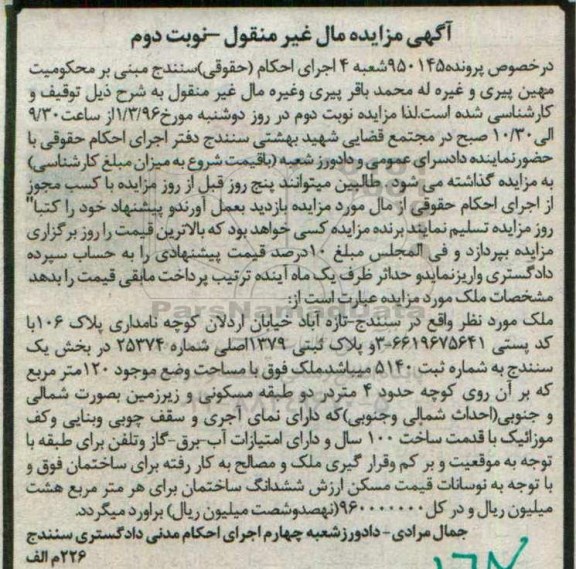 آگهی مزایده مال غیر منقول -نوبت دوم
درخصوص پرونده۹۵۰۱۴۵شعبه ۴ اجرای احکام (حقوقی)سنندج مبنی بر محکومیت
مهین پیری و غیره له محمد باقر پیری وغیره مال غیر منقول به شرح ذیل توقیف و
کارشناسی شده است.لذا مزایده نوبت دوم در روز دوشنبه مورخ۱/۳/۹۶از ساعت۹/۳۰
الی۱۰/۳۰ صبح در مجتمع قضایی شهید بهشتی سنندج دفتر اجرای احکام حقوقی با
حضورنماینده دادسرای عمومی و دادورز شعبه (باقیمت شروع به میزان مبلغ کارشناسی)
به مزایده گذاشته می شود. طالبین میتوانند پنج روز قبل از روز مزایده با کسب مجوز
از اجرای احکام حقوقی از مال مورد مزایده بازدید بعمل آورندو پیشنهاد خود را کتبا"
روز مزایده تسلیم نمایند.برنده مزایده کسی خواهد بود که بالاترین قیمت را روز برگزاری
مزایده بپردازد و فی المجلس مبلغ ۱۰درصد قیمت پیشنهادی را به حساب سپرده
دادگستری واریزنمایدو حداثر ظرف یک ماه آینده ترتیب پرداخت مابقی قیمت را بدهد
مشخصات ملک مورد مزایده عبارت است از:
ParsNamadData
ملک مورد نظر واقع در سنندج-تازه آباد خیابان اردلان کوچه نامداری پلاک ۱۰۶با
کد پستی ۶۶۱۹۶۷۵۶۴۱-۳و پلاک ثبتی ۱۳۷۹اصلی شماره ۲۵۳۷۴ در بخش یک
سنندج به شماره ثبت ۵۱۴۰ میباشد.ملک فوق با مساحت وضع موجود ۱۲۰متر مربع
که بر آن روی کوچه حدود ۴ متردر دو طبقه مسکونی و زیرزمین بصورت شمالی
و جنوبی(احداث شمالی وجنوبی)که دارای نمای آجری و سقف چوبی وبنایی وکف
موزائیک با قدمت ساخت ۱۰۰ سال و دارای امتیازات آب-برق-گاز وتلفن برای طبقه با
توجه به موقعیت و بر کم وقرار گیری ملک و مصالح به کار رفته برای ساختمان فوق و
با توجه به نوسانات قیمت مسکن ارزش ششدانگ ساختمان برای هر متر مربع هشت
میلیون ریال و در کل۹۶۰۰۰۰۰۰۰(نهصدوشصت میلیون ریال) براورد میگردد.
جمال مرادی- دادورزشعبه چهارم اجرای احکام مدنی دادگستری سنندج
۲۲۶م الف